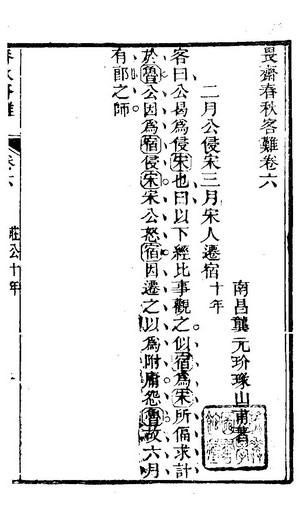 畏齋春秋客難卷六
南昌龔元玠瑑山甫著
二月公侵宋三月宋人遷宿十年
客曰公曷爲侵宋也曰以下經比事觀之似宿爲宋所偪求計
於魯公因爲宿侵宋宋公怒宿因遷之以爲附庸怨魯故六月
有郎之師
春秋客難
卷六
莊公十年